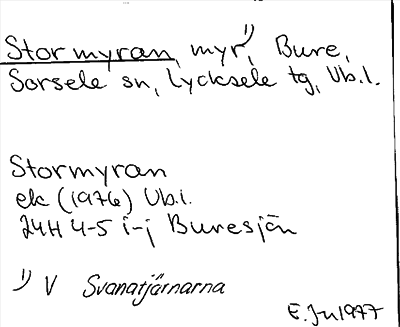 Stormyran, myr¹⁾, Bure,
Sorsele sn, Lycksele tg, Vb.l.
Stormyran
ek (1976) Vb.l.
24H 4-5 i-j Buresjön
¹⁾ V Svanatjärnarna
E.Jn 1977